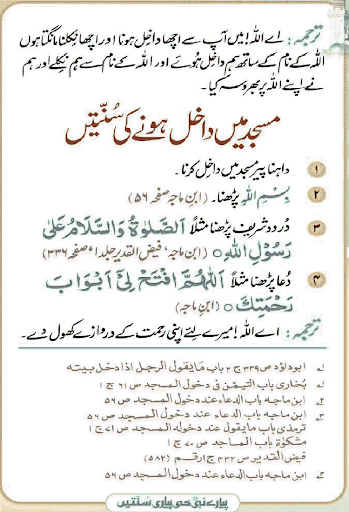 ترجمہ: اے اللہ! میں آپ سے اچھا داخل ہونا اور اچھا نکلنا مانگتا ہوں
اللہ کے نام کے ساتھ ہم داخل ہوئے اور اللہ کے نام سے ہم نکلے اور ہم
نے اپنے اللہ پر بھروسہ کیا۔
مسجد میں داخل ہونے کی سُنّتیں
۱ داہنا پیر مسجد میں داخل کرنا۔
۲ بِسْمِ اللهِ پڑھنا۔ (ابن ماجہ صفحہ ۵۶)
۳ درود شریف پڑھنا مثلاً اَلصَّلٰوةُ وَالسَّلَامُ عَلٰی
رَسُوْلِ اللهِ ○ (ابن ماجہ، فیض القدیر جلد ۱، صفحہ ۳۳۶)
۴ دُعا پڑھنا مثلاً اَللّٰهُمَّ افْتَحْ لِیْٓ اَبْوَابَ
رَحْمَتِكَ ○ (ابن ماجہ)
ترجمہ: اے اللہ! میرے لئے اپنی رحمت کے دروازے کھول دے۔
۱ ابوداؤد ص ۳۳۹ ج ۲ باب ما یقول الرجل اذا دخل بیته
بخاری باب التیمن فی دخول المسجد ص ۶۱ ج ۱
۲ ابن ماجه باب الدعاء عند دخول المسجد ص ۵۶
۳ ابن ماجه باب الدعاء عند دخول المسجد ص ۵۶
ترمذی باب ما یقول عند دخوله المسجد ص ۷۱ ج ۱
مشکوٰة باب المساجد ص ۷۰ ج ۱
فیض القدیر ص ۴۳۲ ج ۱ رقم (۵۸۲)
۴ ابن ماجه باب الدعاء عند دخول المسجد ص ۵۶
پیارے نبی کی پیاری سنتیں